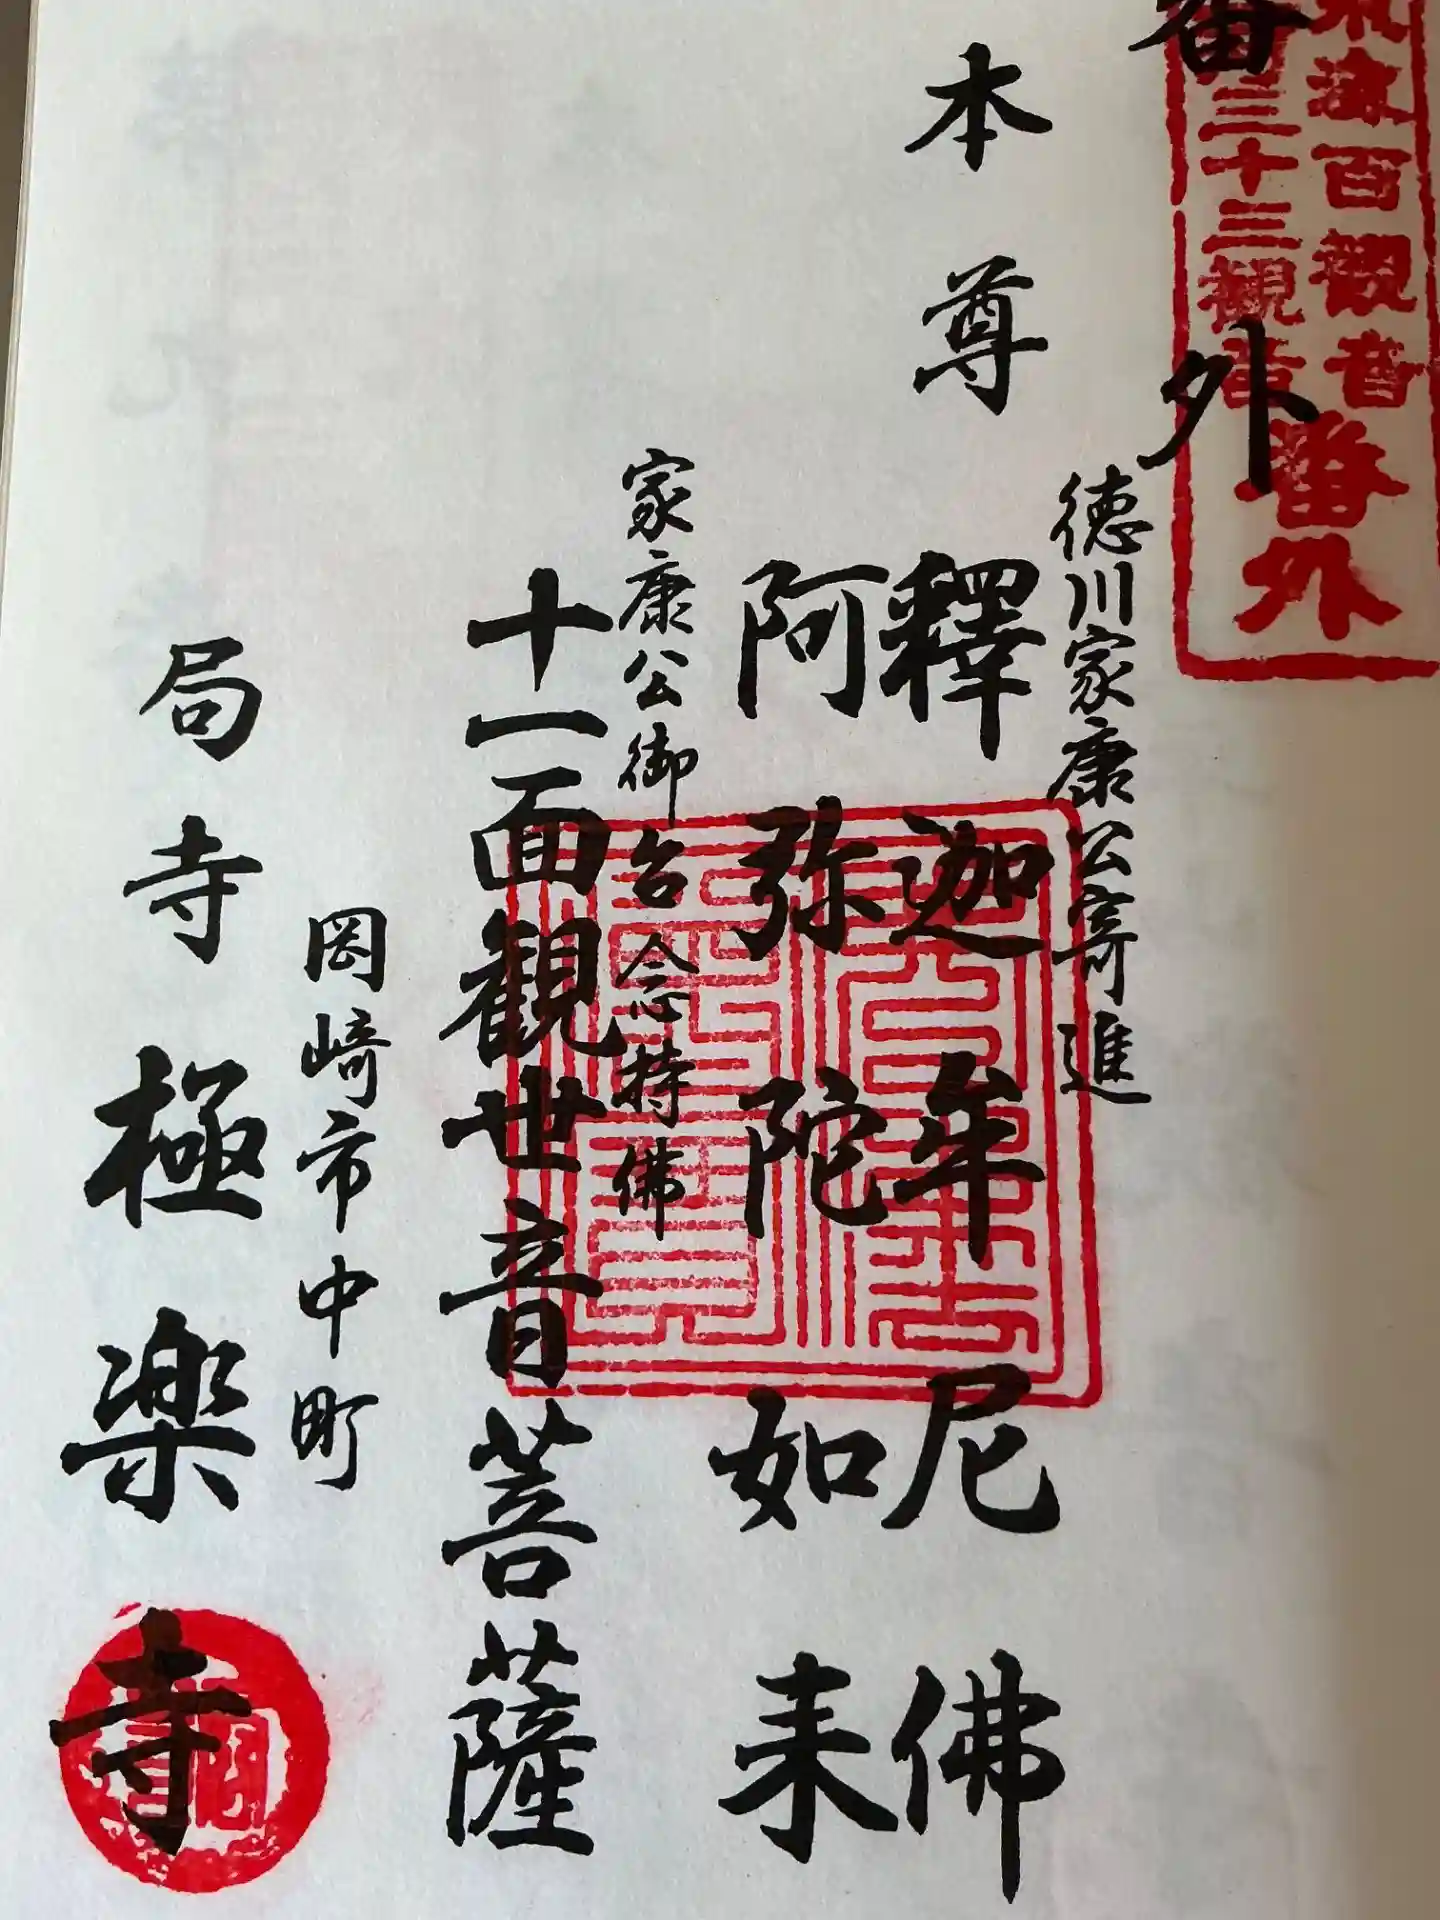 番外
百観音
三十三観音
番外
本尊
徳川家康公寄進
釋迦牟尼佛
阿弥陀如来
家康公御台念持佛
十一面観世音菩薩
岡崎市中町
局寺極楽寺